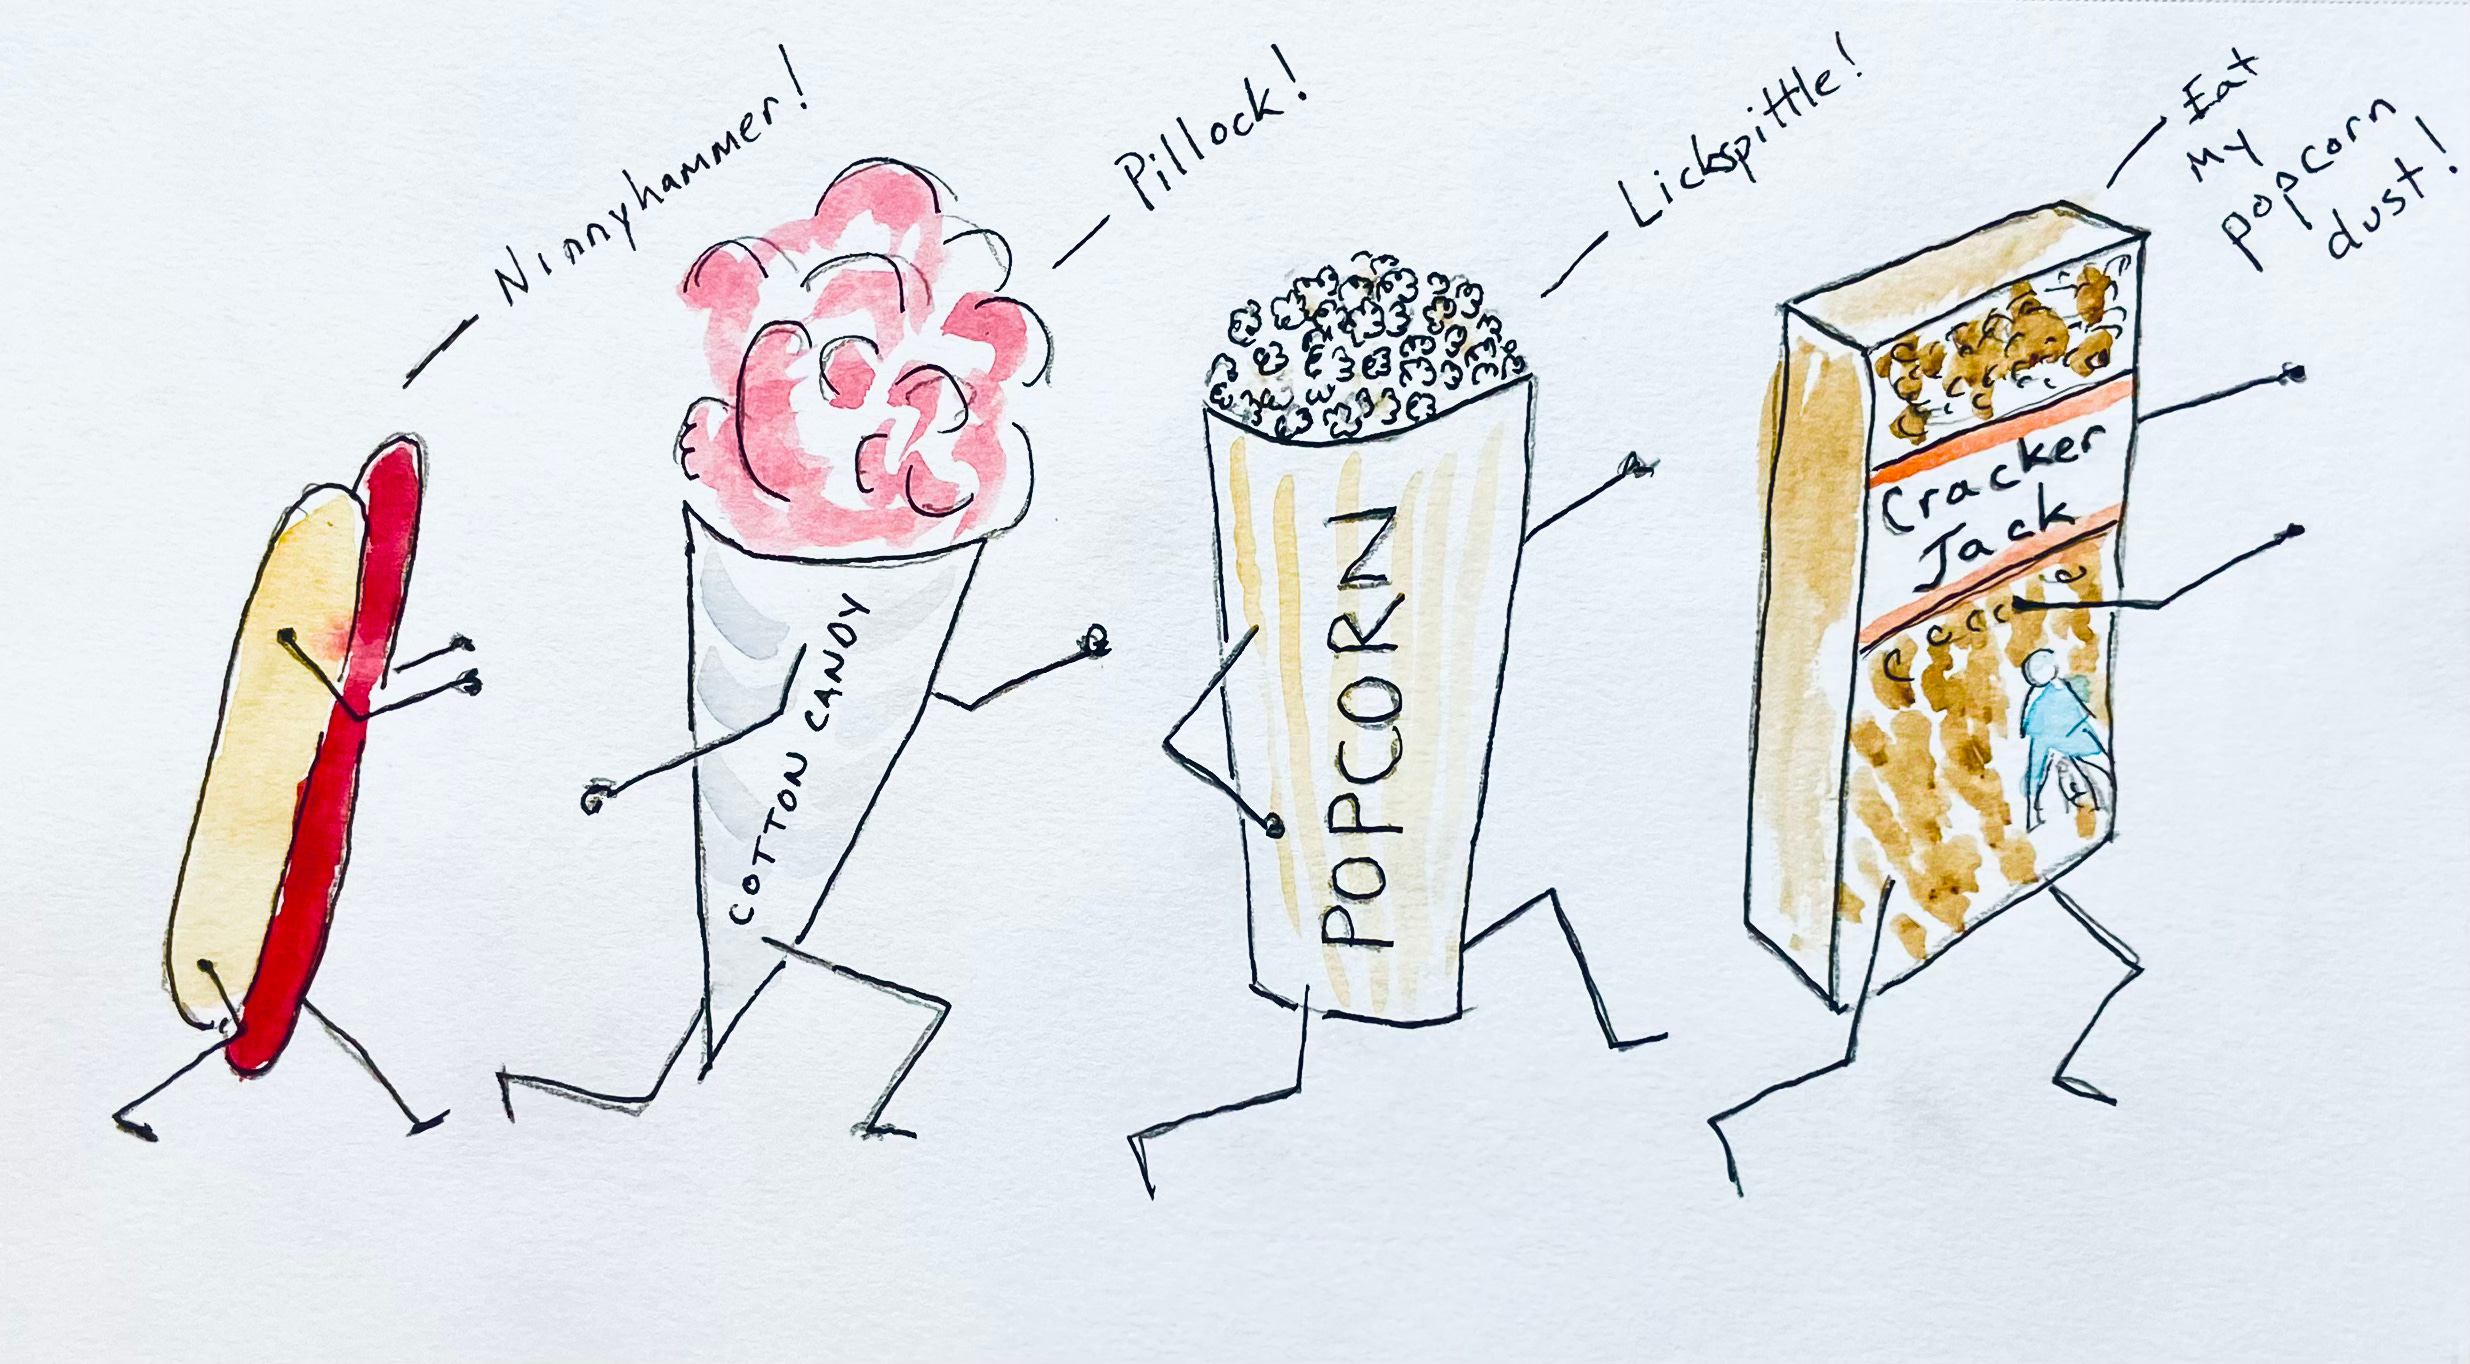 Ninnyhammer!
Pillock!
Lickspittle!
Eat
my
popcorn
dust!
COTTON CANDY
POPCORN
Cracker
Jack